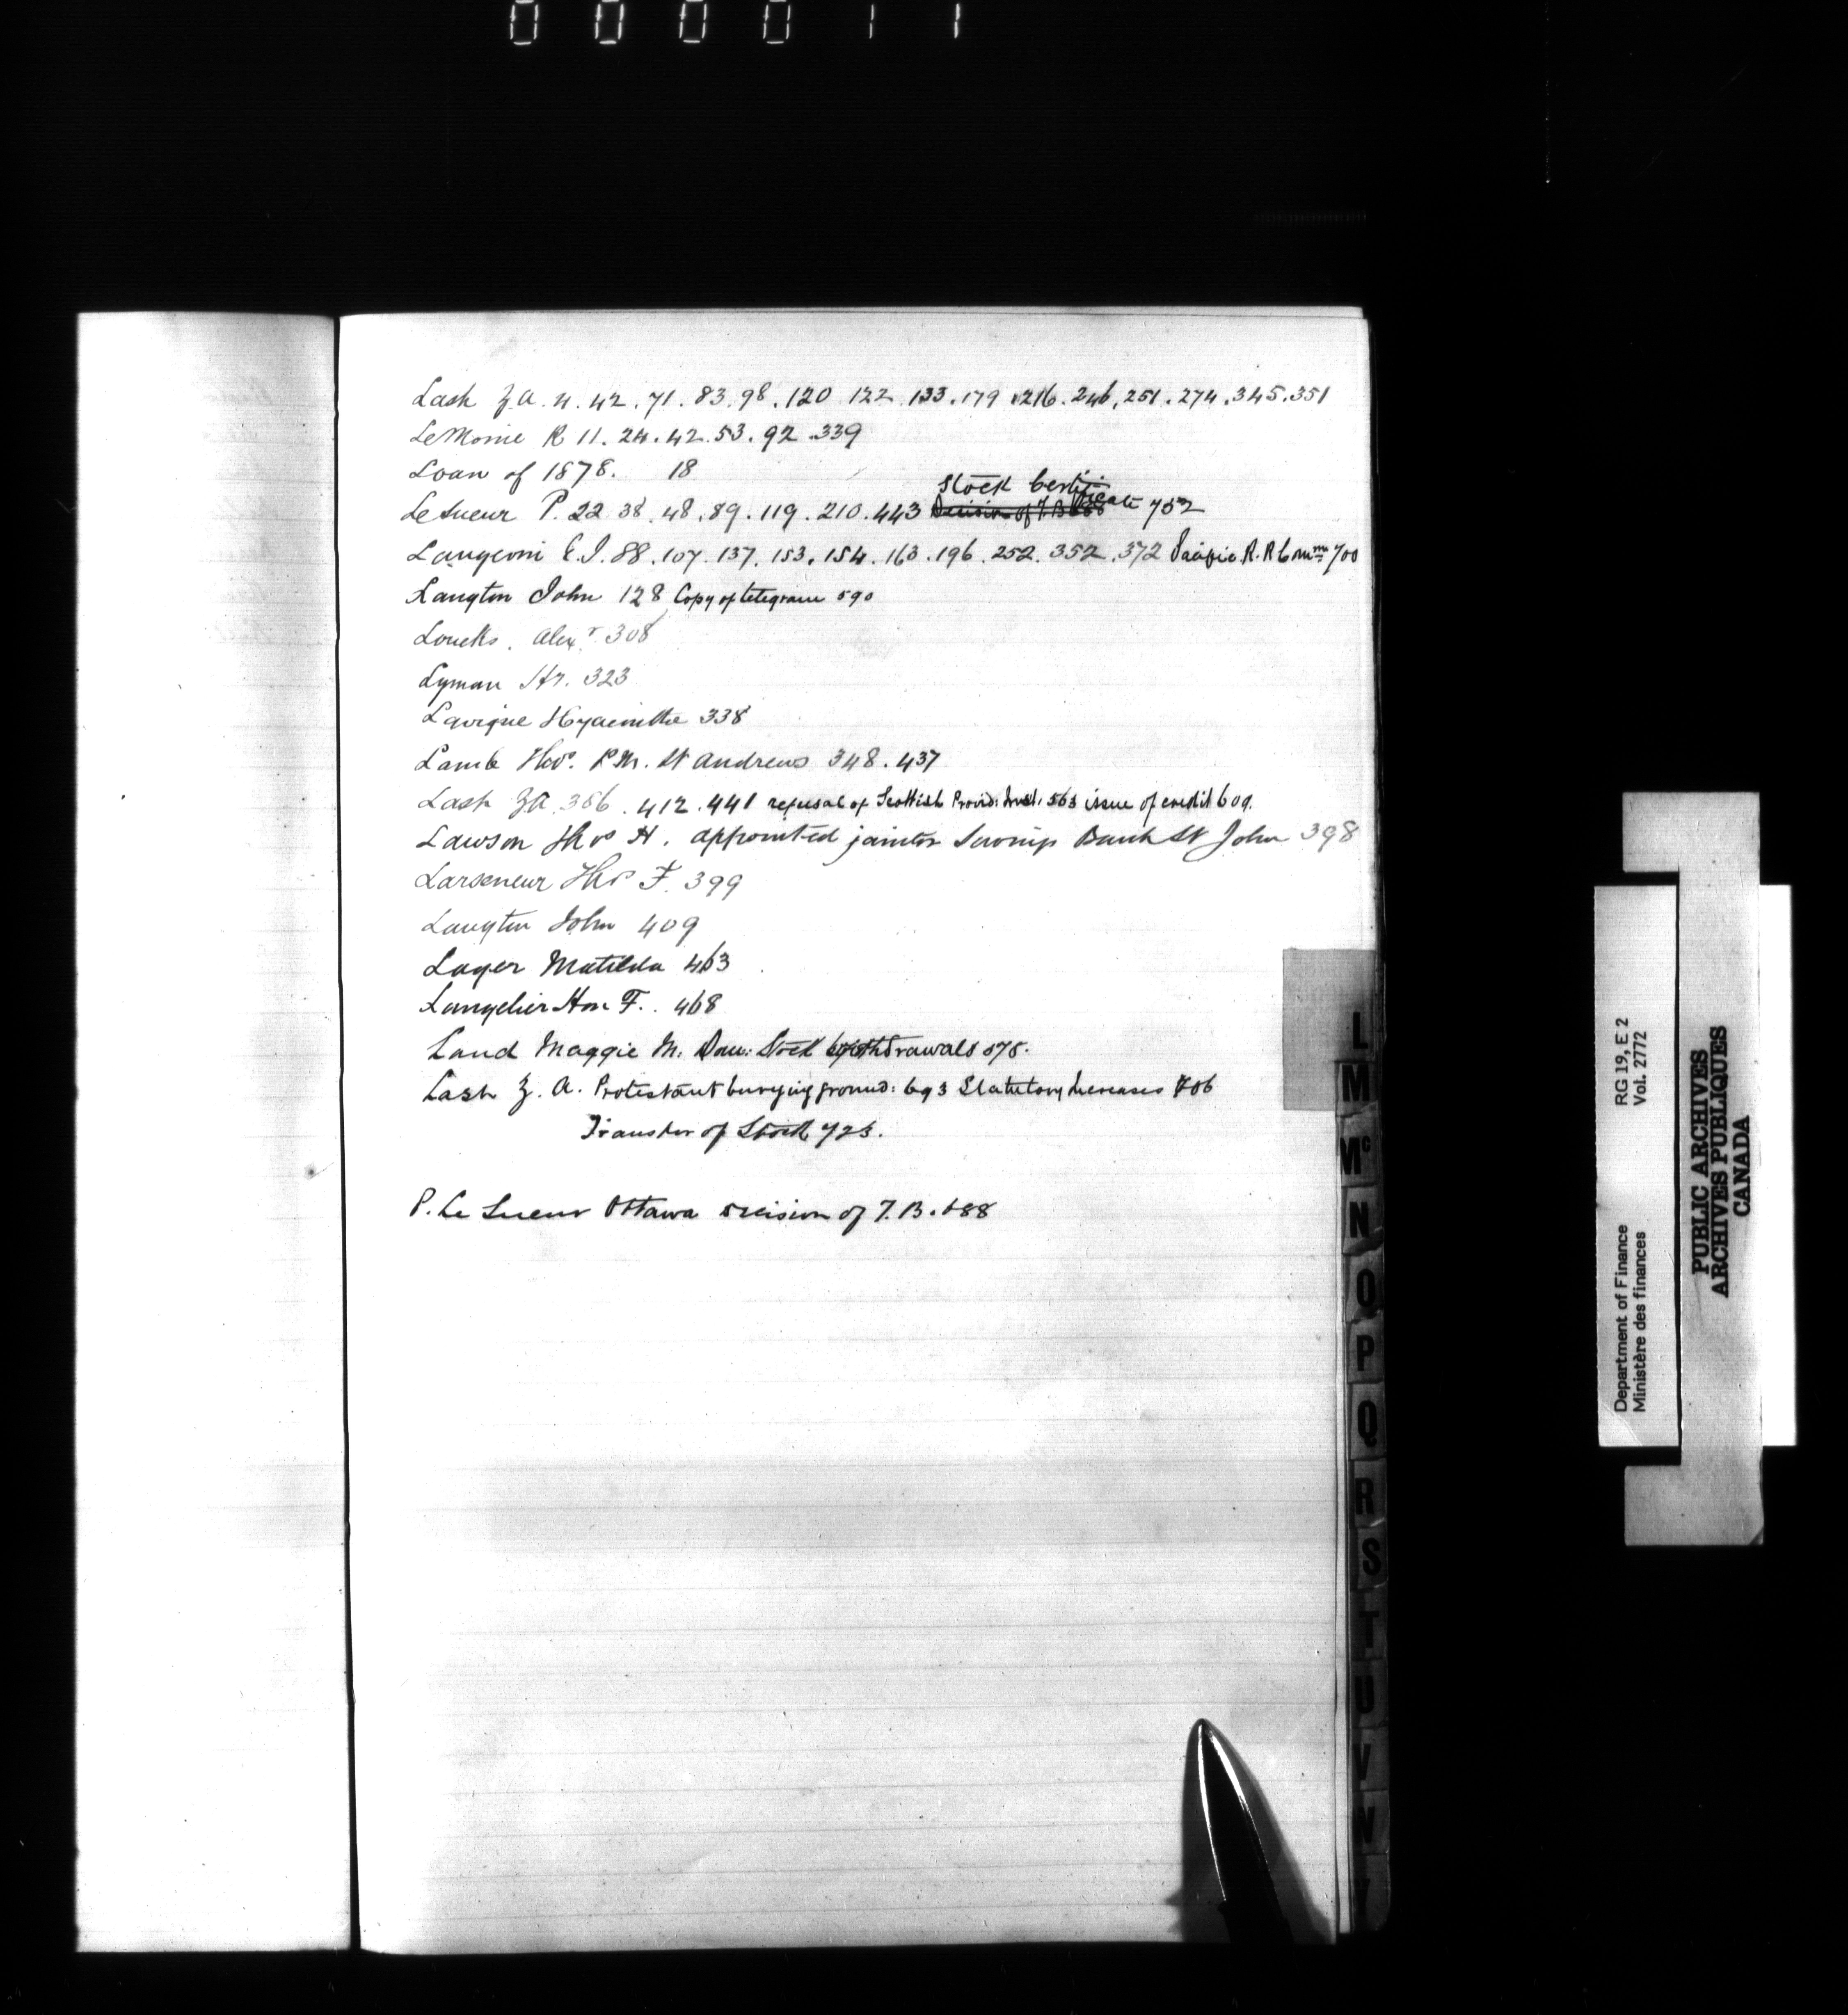 000011
Lash Z.A. 4. 42. 71. 83. 98. 120 122. 133. 179. 216. 246, 251. 274. 345. 351
LeMoine R 11. 24. 42. 53. 92. 339
Loan of 1878. 18
Stock Certificate 752
LeSueur P. 22. 38. 48. 89. 119. 210. 443 Decision of T.B 688
Langevin E.J. 88. 107. 137. 153. 154. 163. 196. 252. 352. 372 Pacific R.R Commn 700
Langton John 128 Copy of telegram 590
Loucks. Alexr 308
Lyman Hy. 323
Lavigne Hyacinthe 338
Lamb Thos. P.M. St Andrews 348. 437
Lash ZA 386. 412. 441 refusal of Scottish Provid: Inst: 563 issue of credit 609.
Lawson Thos H. appointed janitor Savings Bank St John 398
Larseneur Thos F. 399
Langton John 409
Lager Matilda 463
Langelier Hon F. 468
Land Maggie M. Dom: Stock withdrawals 575.
Lash Z. A. Protestant burying ground: 693 Statutory Increases 706
Transfer of Stock 723.
P. Le Sueur Ottawa decision of T.B. 688
L
M
Mc
N
O
P
Q
R
S
T
U
V
W
Department of Finance RG 19, E 2
Ministère des finances Vol. 2772
PUBLIC ARCHIVES
ARCHIVES PUBLIQUES
CANADA